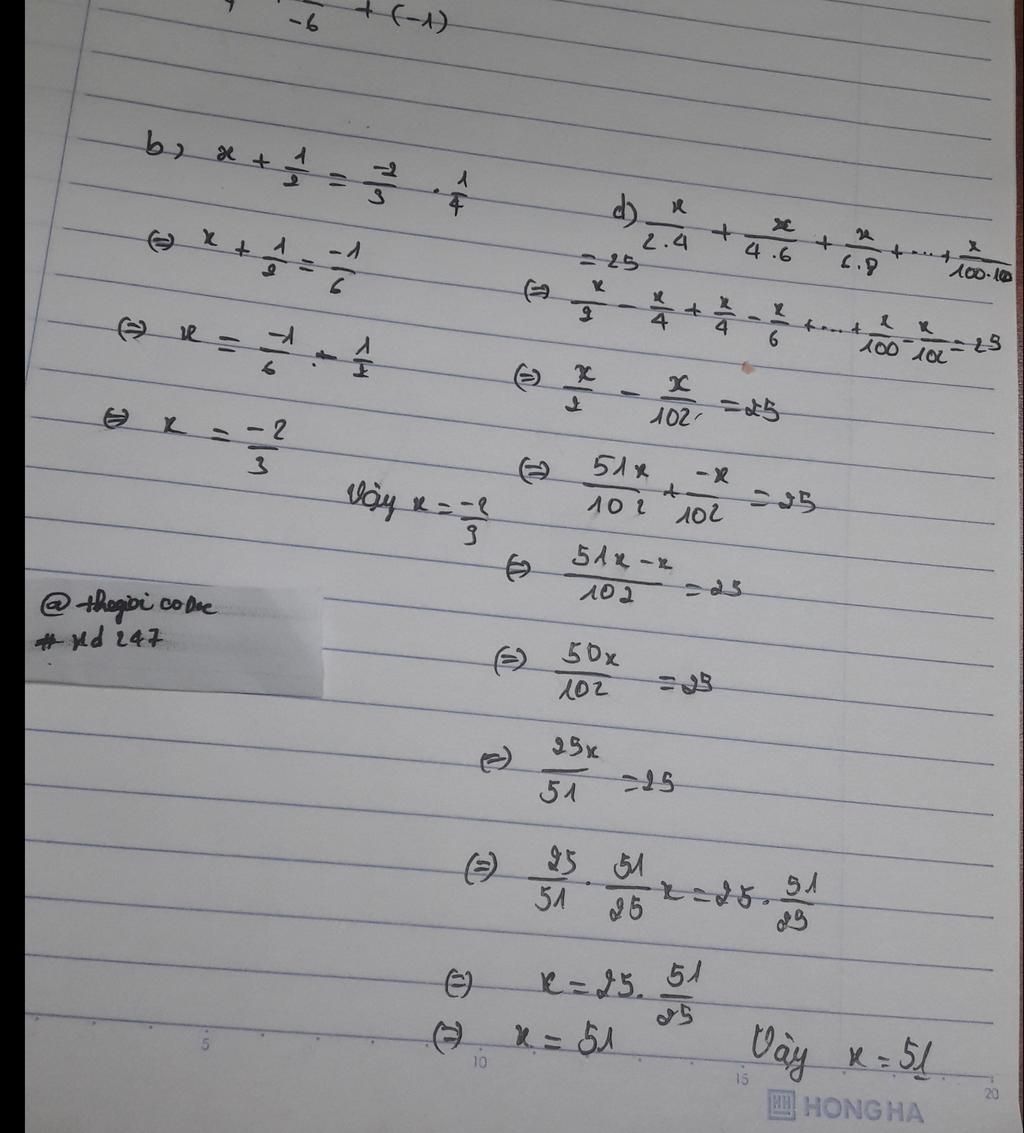 -6 + (-1)
b) x + 1/2 = -2/3 . 1/4
(=) x + 1/2 = -1/6
(=) x = -1/6 - 1/2
(=) x = -2/3
Vậy x = -2/3
@ thegioi
# xd 247
d) x/2.4 + x/4.6 + x/6.8 + ... + x/
= 25
(=) x/2 - x/4 + x/4 - x/6 + ... + x/100 - x/102 = 25
(=) x/2 - x/102 = 25
(=) 51x/102 + -x/102 = 25
(=) 51x - x/102 = 25
(=) 50x/102 = 25
(=) 25x/51 = 25
(=) 25/51 . 51/25 x = 25 . 51/25
(=) x = 25 . 51/25
(=) x = 51
Vậy x = 51
5 10 15 20
HH HONG HA